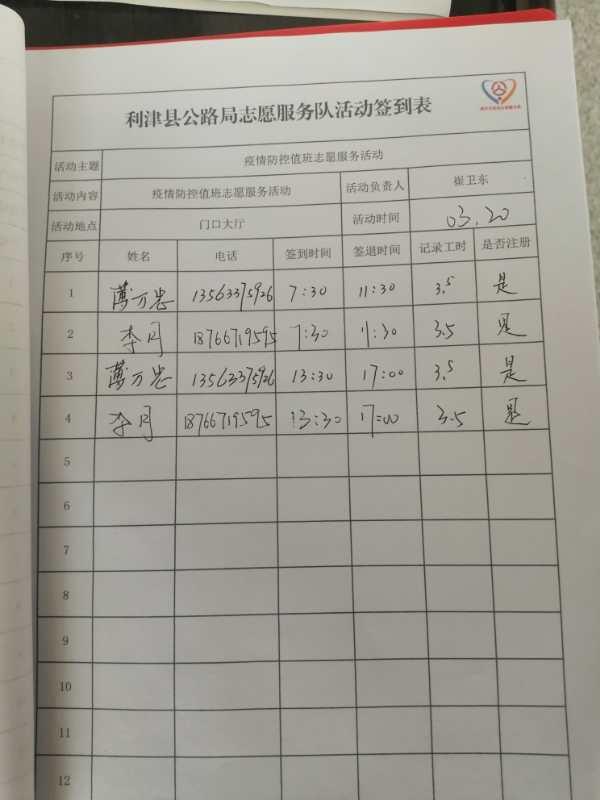 利津县公路局志愿服务队活动签到表
活动主题 疫情防控值班志愿服务活动
活动内容 疫情防控值班志愿服务活动 活动负责人 崔卫东
活动地点 门口大厅 活动时间 03.20
序号 姓名 电话 签到时间 签退时间 记录工时 是否注册
1 薄万忠 13563375926 7:30 11:30 3.5 是
2 李月 18766719595 7:30 11:30 3.5 是
3 薄万忠 13563375926 13:30 17:00 3.5 是
4 李月 18766719595 13:30 17:00 3.5 是
5
6
7
8
9
10
11
12